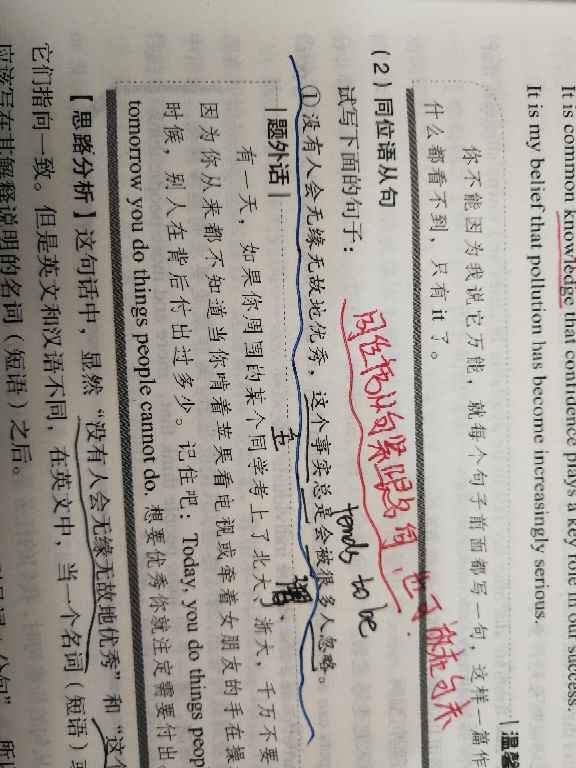 It is common knowledge that confidence plays a key role in our success.
It is my belief that pollution has become increasingly serious.
温馨
你不能因为我说它万能，就每个句子前面都写一句，这样一篇作
什么都看不到，只有 it 了。
同位语从句紧跟名词，也可放在句末
（2）同位语从句
试写下面的句子：
①没有人会无缘无故地优秀，这个事实总是会被很多人忽略。
tends to be
题外话
有一天，如果你周围的某个同学考上了北大、浙大，千万不要
因为你从来都不知道当你啃着苹果看电视或牵着女朋友的手在操
时候，别人在背后付出过多少。记住吧：Today, you do things peop
tomorrow you do things people cannot do. 想要优秀你就注定需要付出
【思路分析】这句话中，显然“没有人会无缘无故地优秀”和“这个
它们指向一致。但是英文和汉语不同，在英文中，当一个名词（短语）
应该写在其解释说明的名词（短语）之后。